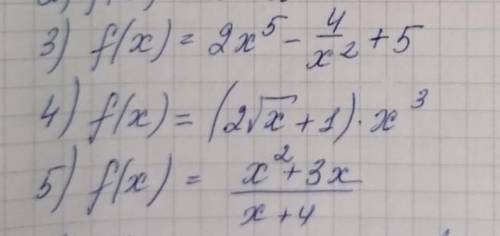 3) f(x) = 2x⁵ - 4/x² + 5
4) f(x) = (2√x + 1) · x³
5) f(x) = (x² + 3x)/(x + 4)